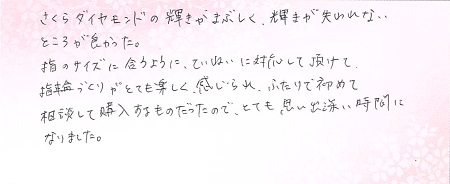 さくらダイヤモンドの輝きがまぶしく、輝きが失われない
ところが良かった。
指のサイズに合うように、ていねいに対応して頂けて、
指輪づくりがとても楽しく感じられ、ふたりで初めて
相談して購入するものだったので、とても思い出深い時間に
なりました。